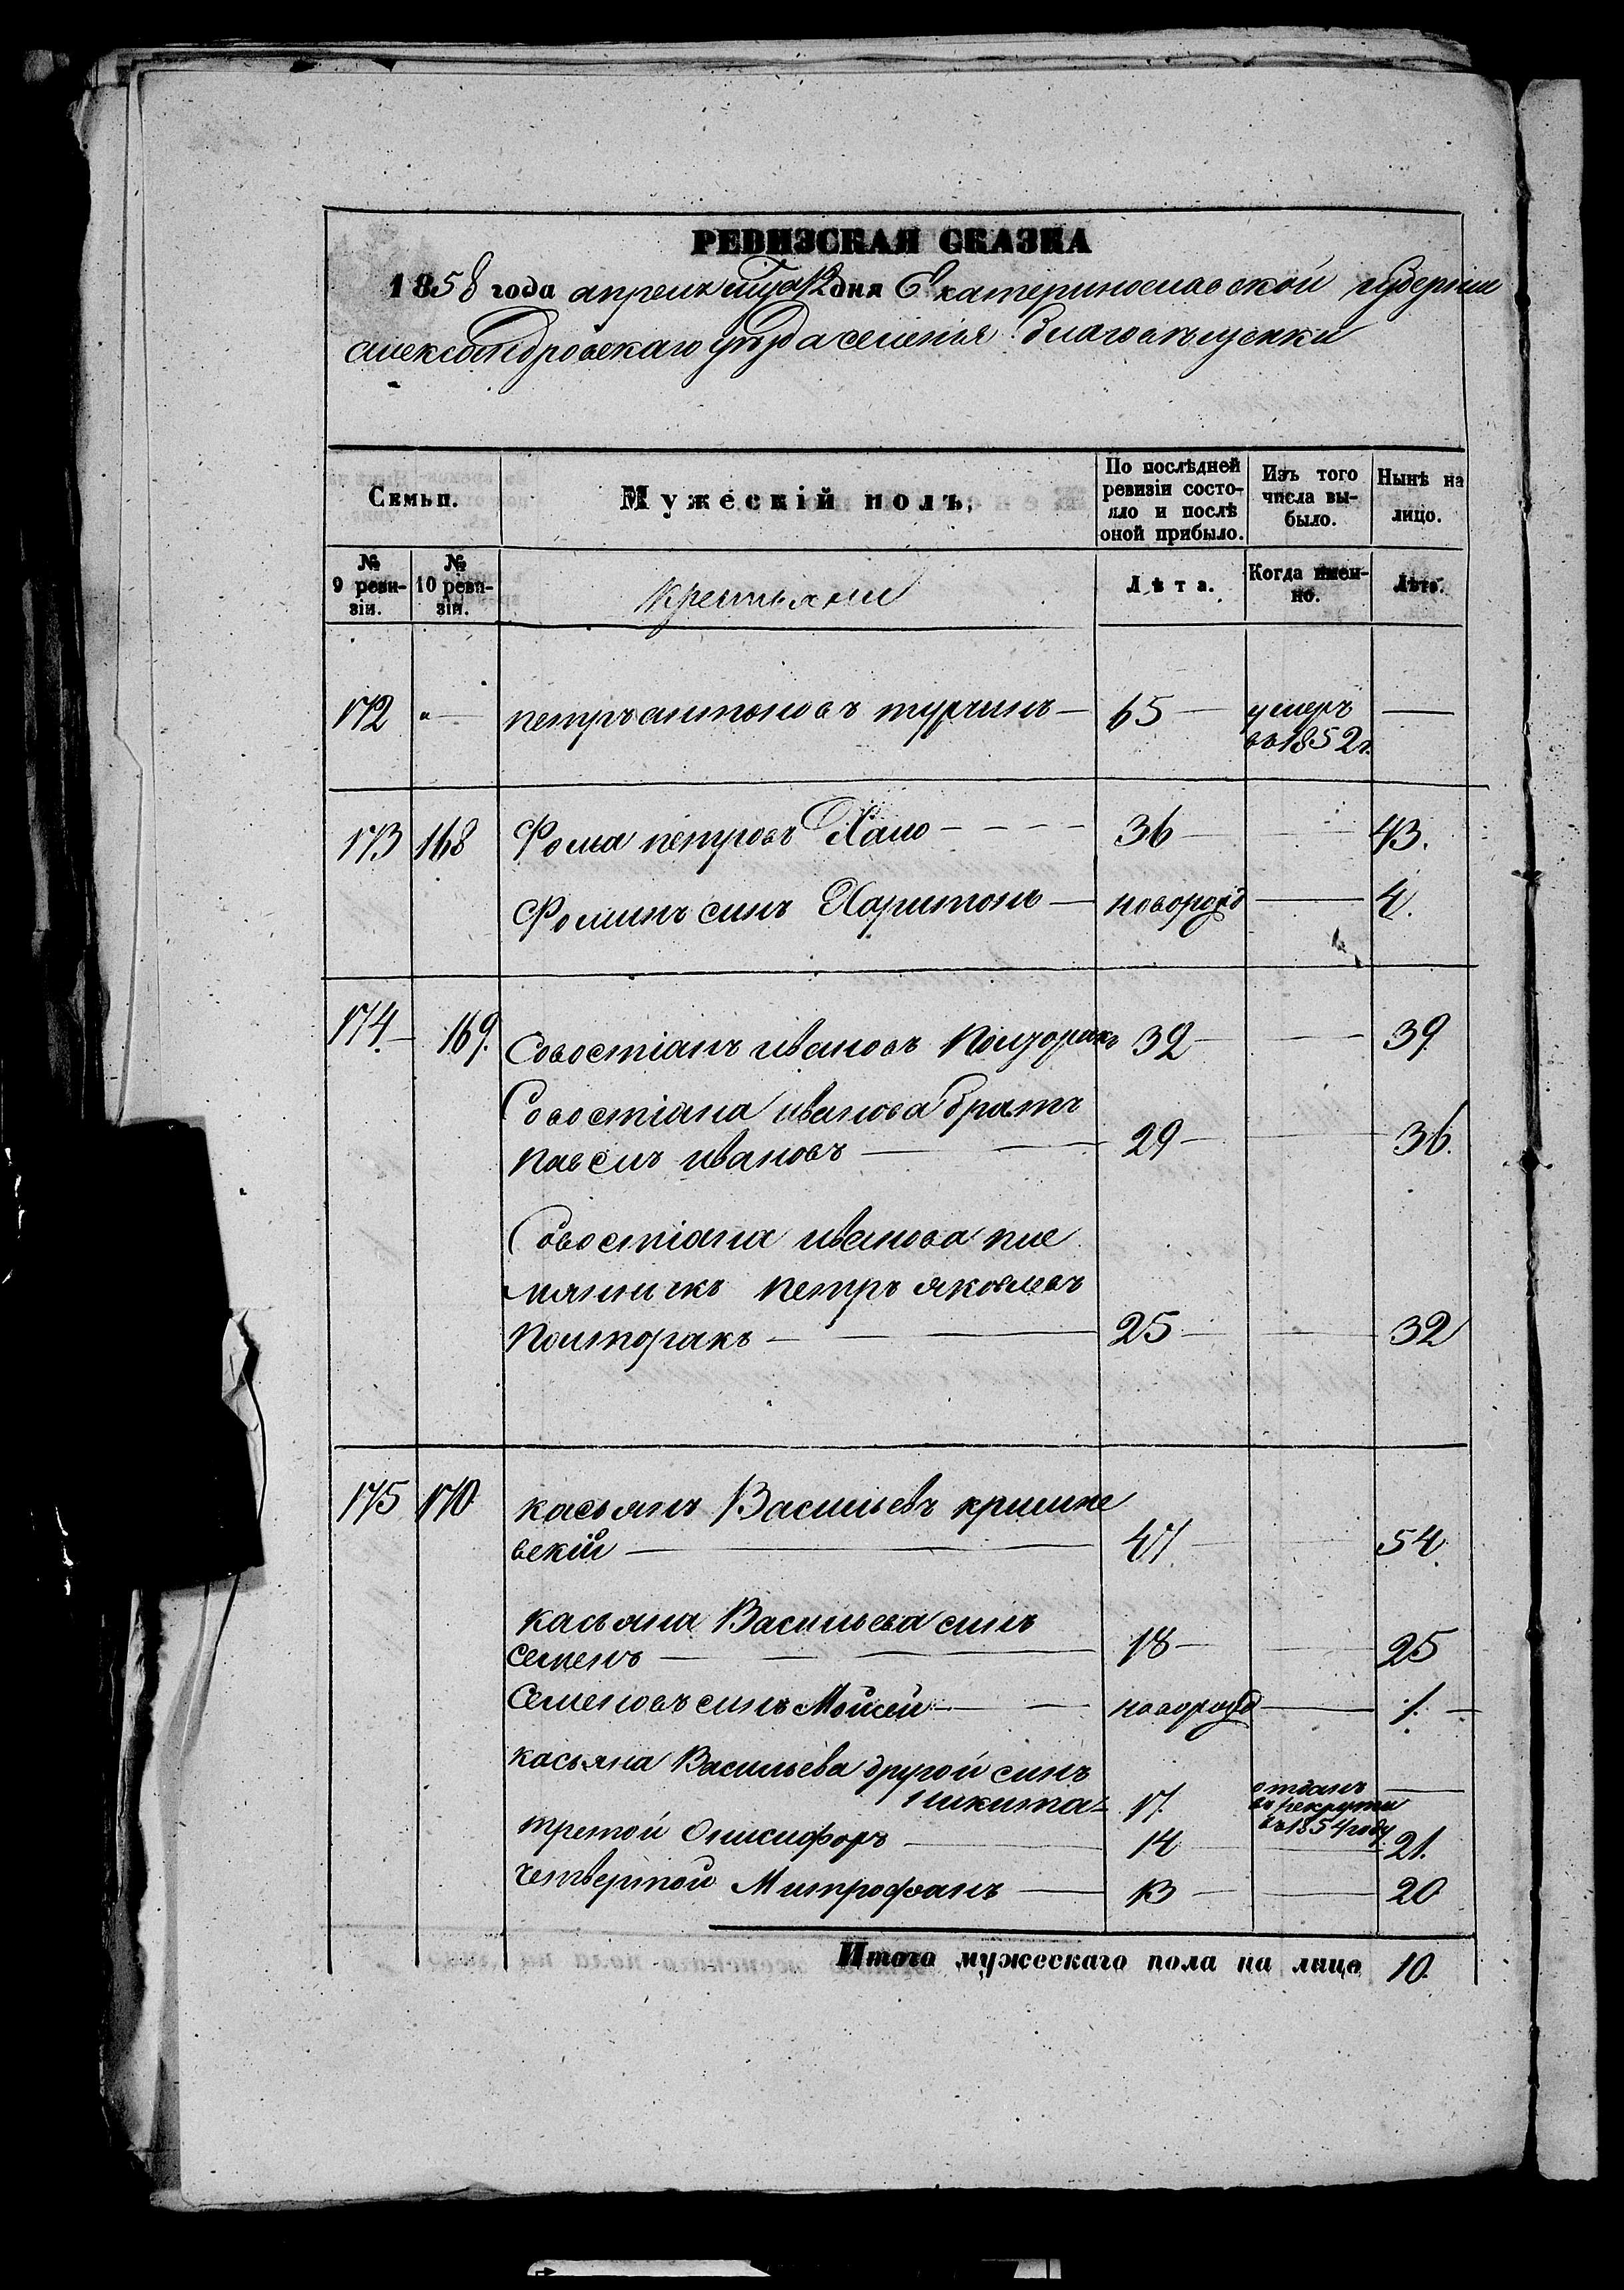 РЕВИЗСКАЯ СКАЗКА
1858 года апреля мца 12 дня Екатеринославской губернии
александровскаго уезда селенья благовещенки
Семьи.
Мужескій полъ.
По послѣдней ревизіи состояло и послѣ оной прибыло.
Изъ того числа выбыло.
Нынѣ на лицо.
№ 9 ревизіи.
№ 10 ревизіи.
крестьяни
Лѣта.
Когда именно.
Лѣта.
172 " — петръ антоновъ турчинъ — 65 — умеръ —
въ 1852 г.
173 168 Фома петровъ Хало - - - - 36 — — 43.
Фоминъ синъ Харитонъ — новорожд — 4.
174. — 169. Совостіанъ ивановъ Полторакъ 32 — — 39
Совостіана иванова братъ
павелъ ивановъ — 29 — — 36.
Совостіана иванова пле
мянникъ петръ яковлевъ
Полторакъ — 25 — — 32
175 170 касьянъ Васильевъ криши
вскій — 47. — — 54.
касьяна Васильева синъ
семенъ — 18 — — 25
Семеновъ синъ Мойсей — новорожд — 1. —
касьяна Васильева другой синъ
никита — 17. отданъ —
въ рекрути
въ 1854 году
третой Онисифоръ — 14 — 21.
четвертой Митрофанъ — 13 — — 20
Итого мужескаго пола на лицо 10.